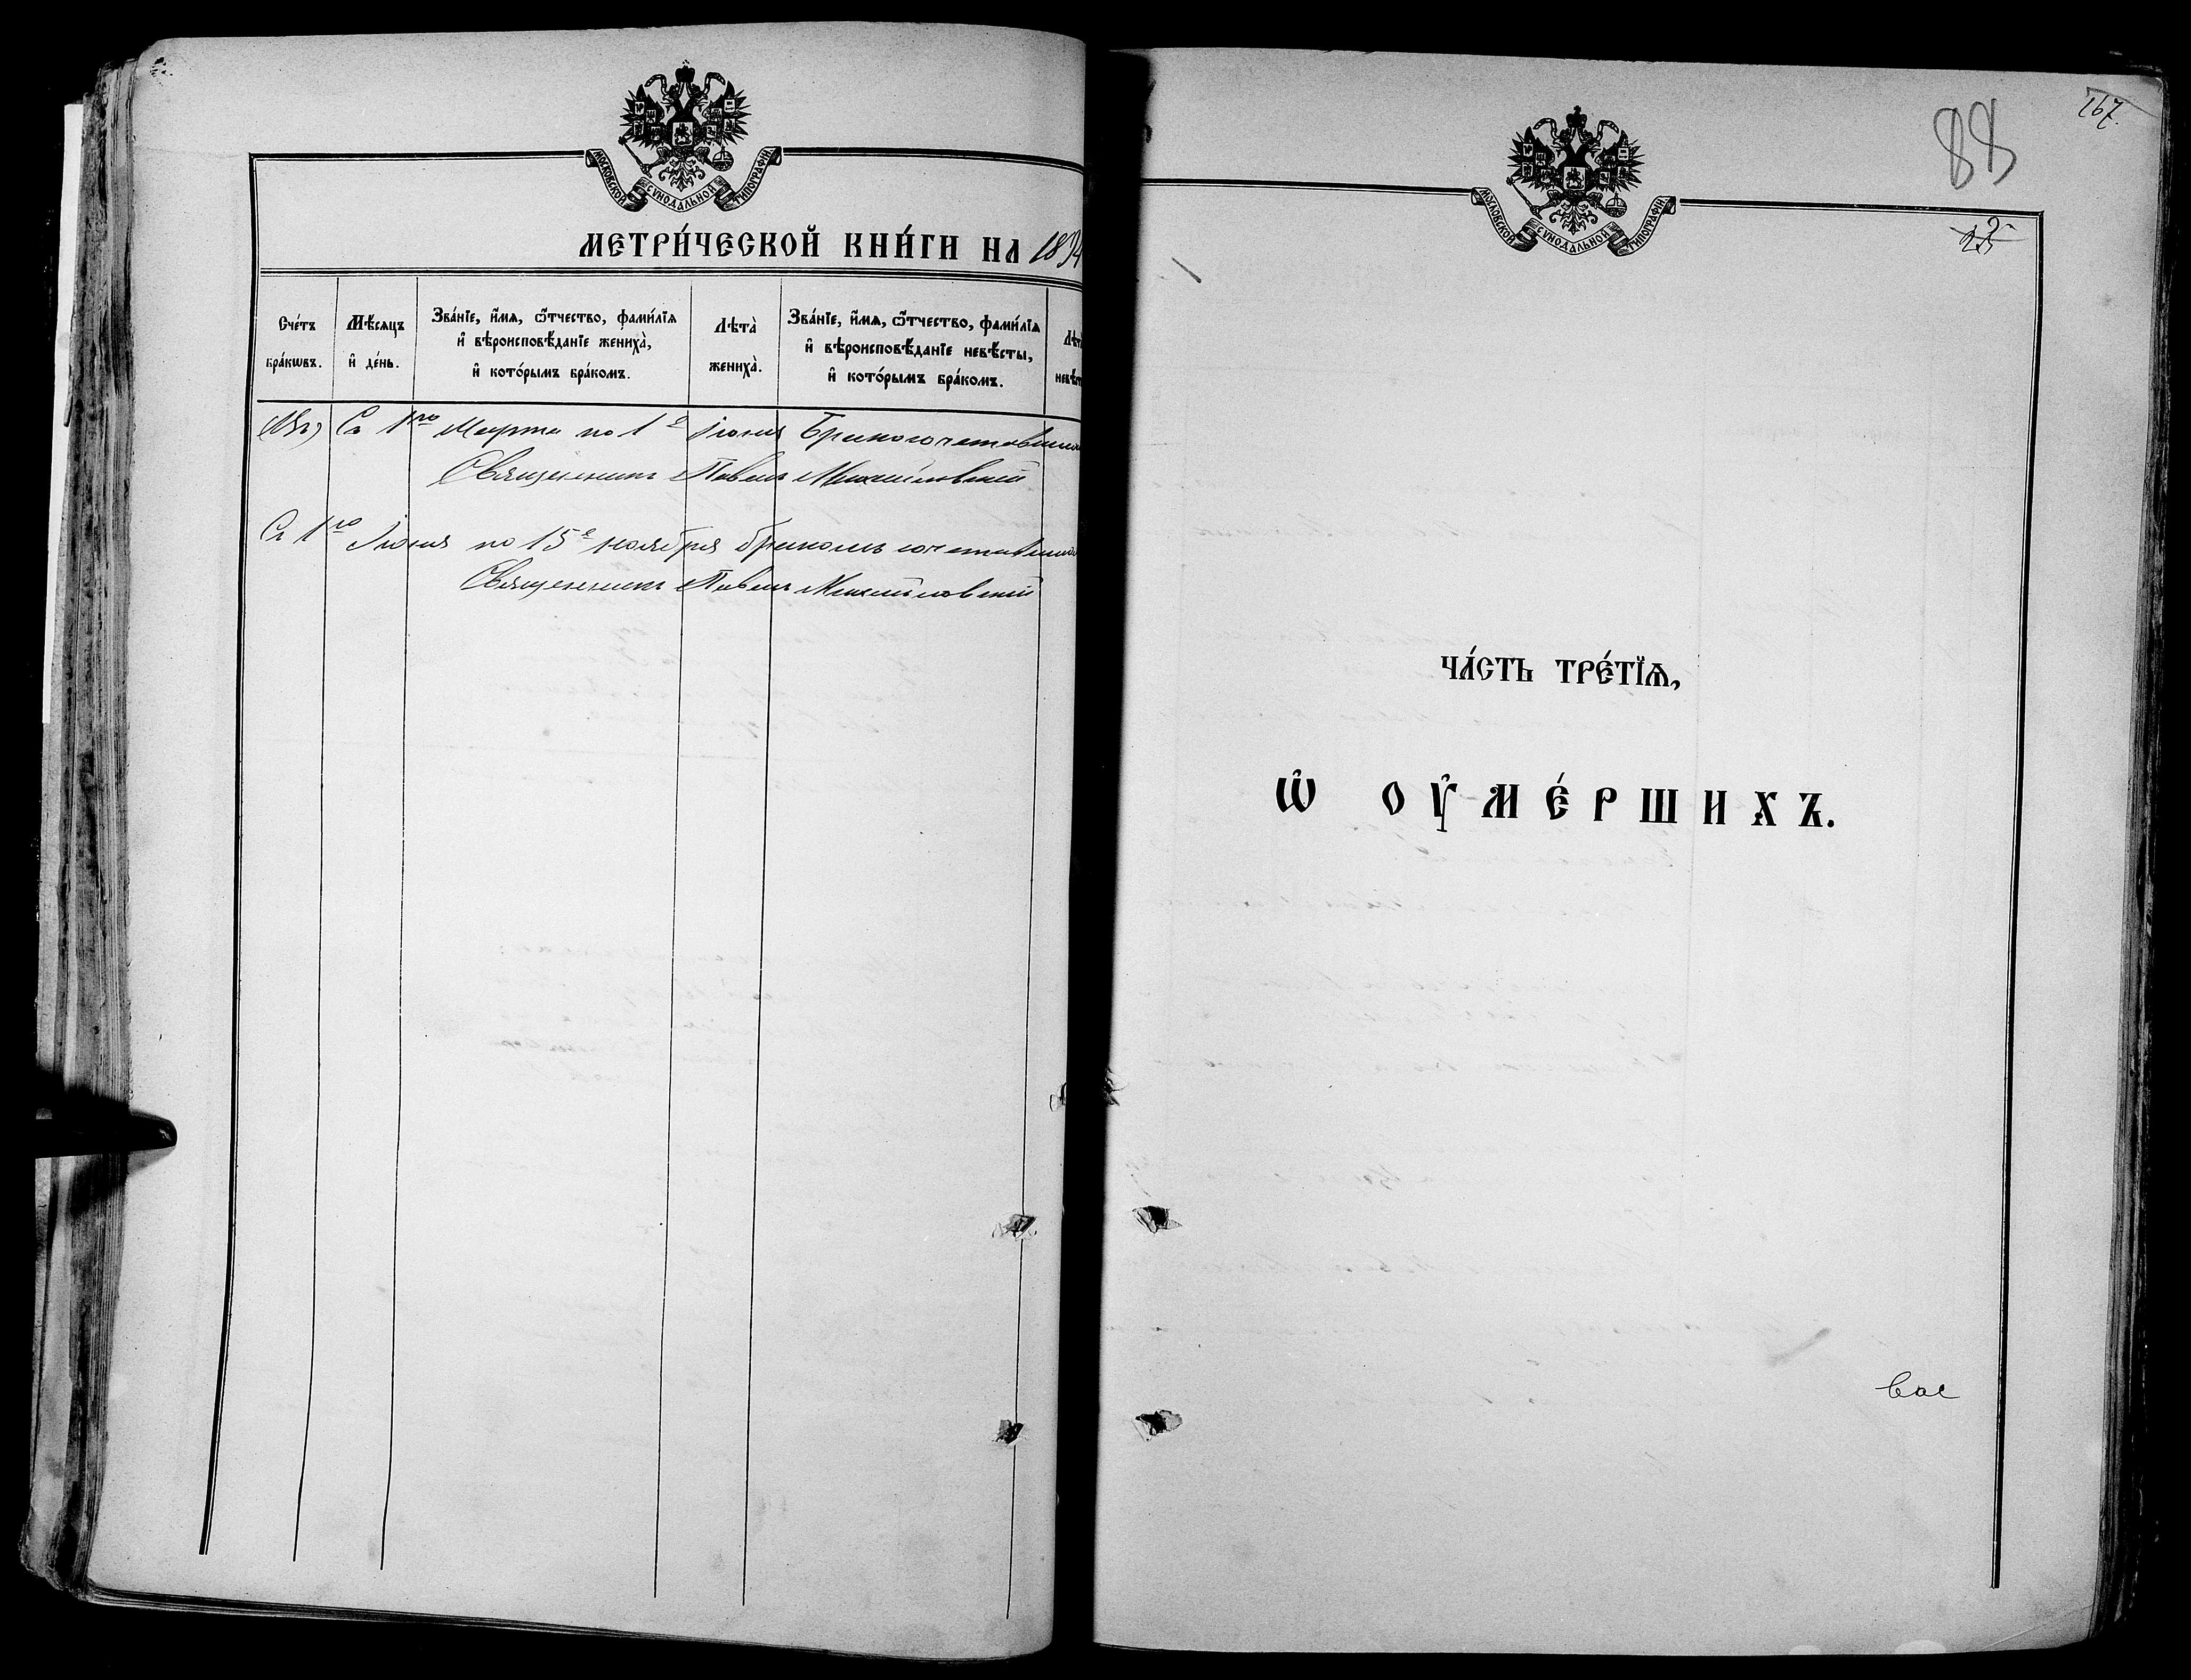 МОСКОВСКОЙ СУНОДАЛЬНОЙ ТИПОГРАФІИ
МЕТРИ́ЧЕСКОЙ КНИ́ГИ НА 1894
Сче́тъ бра́кѡвъ.
Мѣ́сяцъ и҆ де́нь.
Зва́нїе, и҆́мя, ѻ҆́тчество, фами́лїя
и҆ вѣроисповѣ́данїе жениха̀,
и҆ кото́рымъ бра́комъ.
Лѣта̀ жениха̀.
Зва́нїе, и҆́мя, ѻ҆́тчество, фами́лїя
и҆ вѣроисповѣ́данїе невѣ́сты,
и҆ кото́рымъ бра́комъ.
Съ 1го Марта по 1е Іюня
Священникъ Павелъ Михайловскій
Съ 1го Іюня по 15е ноября
Священникъ Павелъ Михайловскій
167.
88
МОСКОВСКОЙ СУНОДАЛЬНОЙ ТИПОГРАФІИ
ЧА́СТЬ ТРЕ́ТЇѦ,
Ѡ҆ ОУ҆МЕ́РШИХЪ.